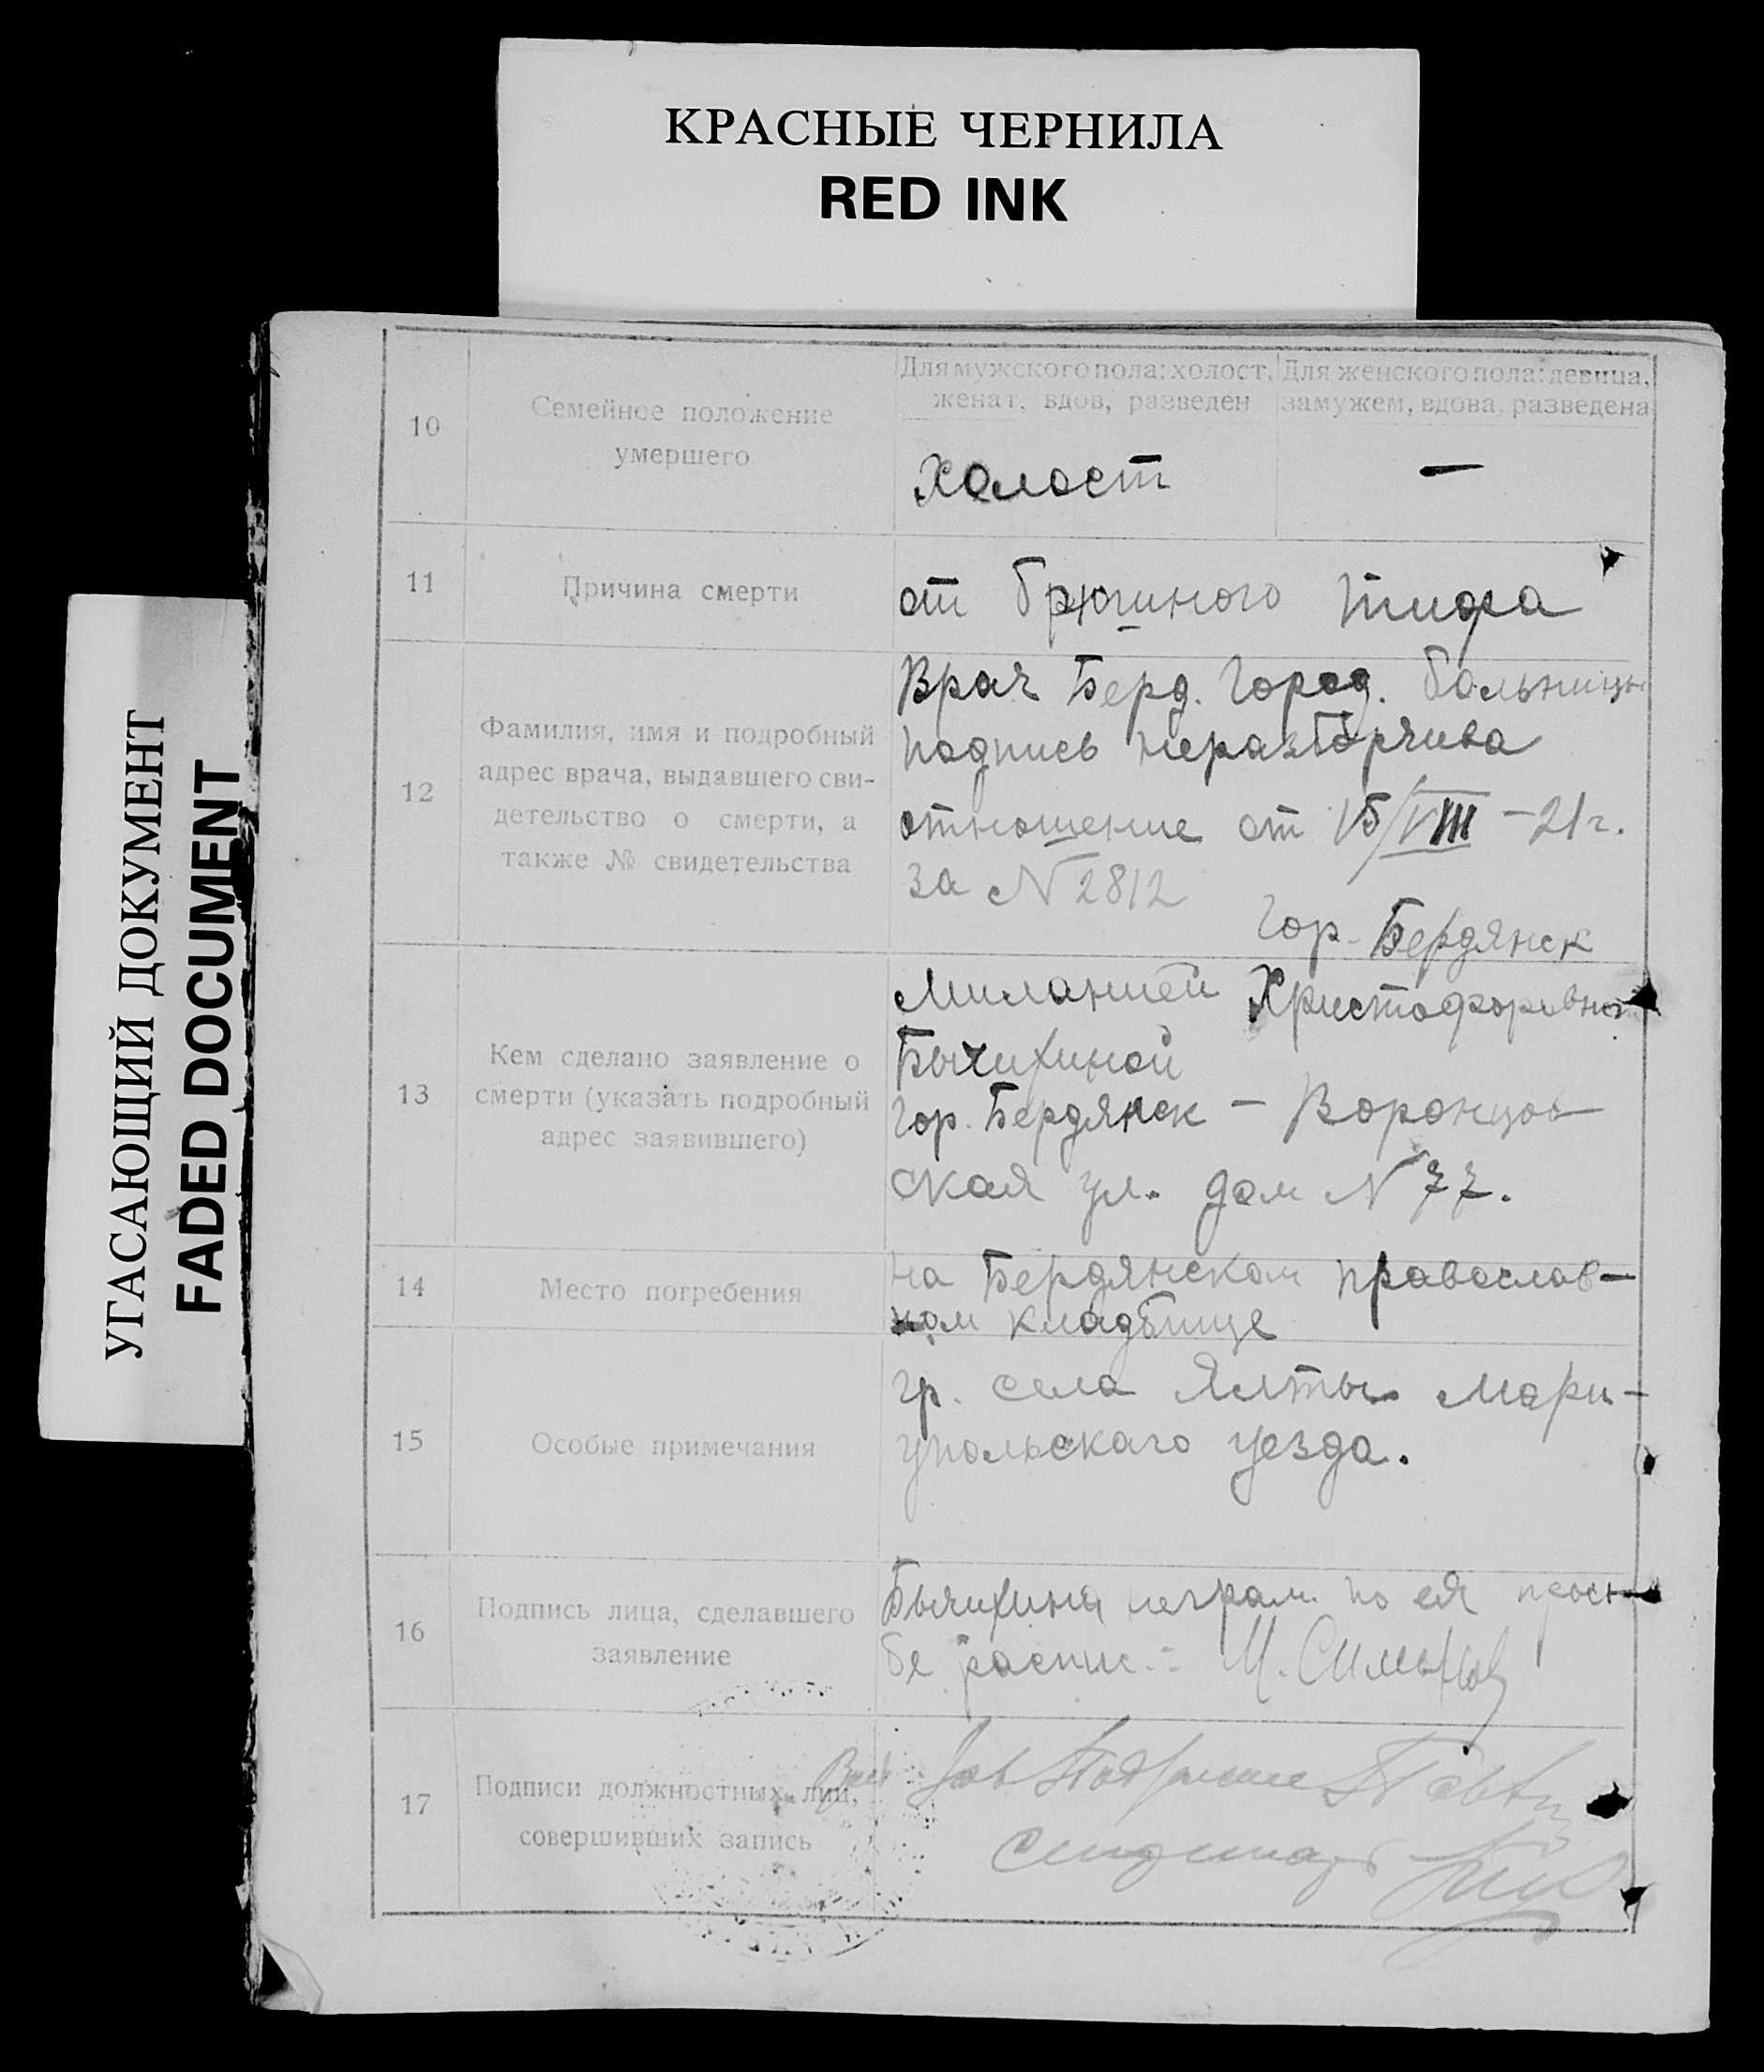 КРАСНЫЕ ЧЕРНИЛА
RED INK
УГАСАЮЩИЙ ДОКУМЕНТ
FADED DOCUMENT
10
Семейное положение
умершего
Для мужского пола: холост,
женат, вдов, разведен
Для женского пола: девица,
замужем, вдова, разведена
Холост
—
11
Причина смерти
от брюшного тифа
12
Фамилия, имя и подробный
адрес врача, выдавшего сви-
детельство о смерти, а
также № свидетельства
Врач Берд. Город. больницы
подпись неразборчива
отношение от 15/VIII –21 г.
за N 2812
Гор. Бердянск
13
Кем сделано заявление о
смерти (указать подробный
адрес заявившего)
Миланией Христофоровной
Бычихиной
Гор. Бердянск – Воронцов
ская ул. дом N 77.
14
Место погребения
на Бердянском православ–
ном кладбище
15
Особые примечания
гр. села Ялты Мари–
упольскаго уезда.
16
Подпись лица, сделавшего
заявление
Бычихина неграм. по ея прось
бе распис. :
17
Подписи должностных лиц,
совершивших запись